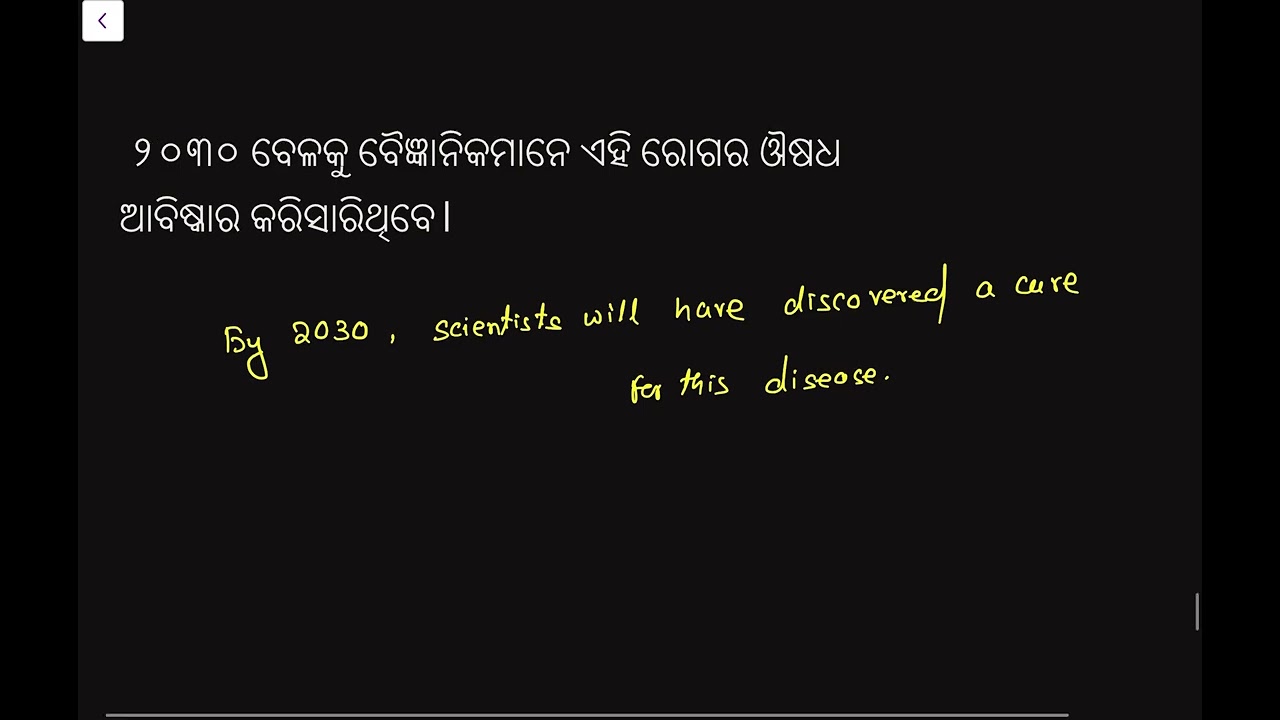 ୨୦୩୦ ବେଳକୁ ବୈଜ୍ଞାନିକମାନେ ଏହି ରୋଗର ଔଷଧ
ଆବିଷ୍କାର କରିସାରିଥିବେ।
By 2030, scientists will have discovered a cure
for this disease.